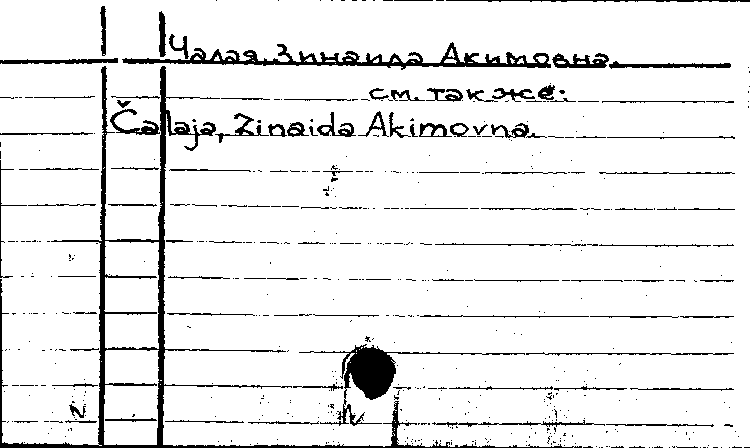 Чалая, Зинаида Акимовна.
см. также:
Čalaja, Zinaida Akimovna.